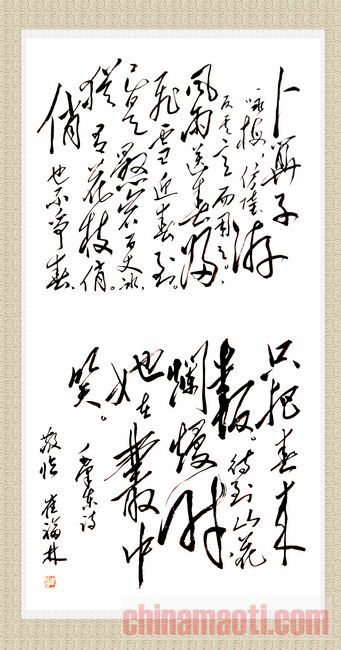 卜算子
咏梅，仿陆游
反其意而用之。
风雨送春归
飞雪迎春到。
已是悬崖百丈冰
犹有花枝俏。
俏
也不争春
只把春来
报。
待到山花
烂熳时
她在丛中
笑。
毛泽东诗
敬临 崔福林
chinamaoti.com